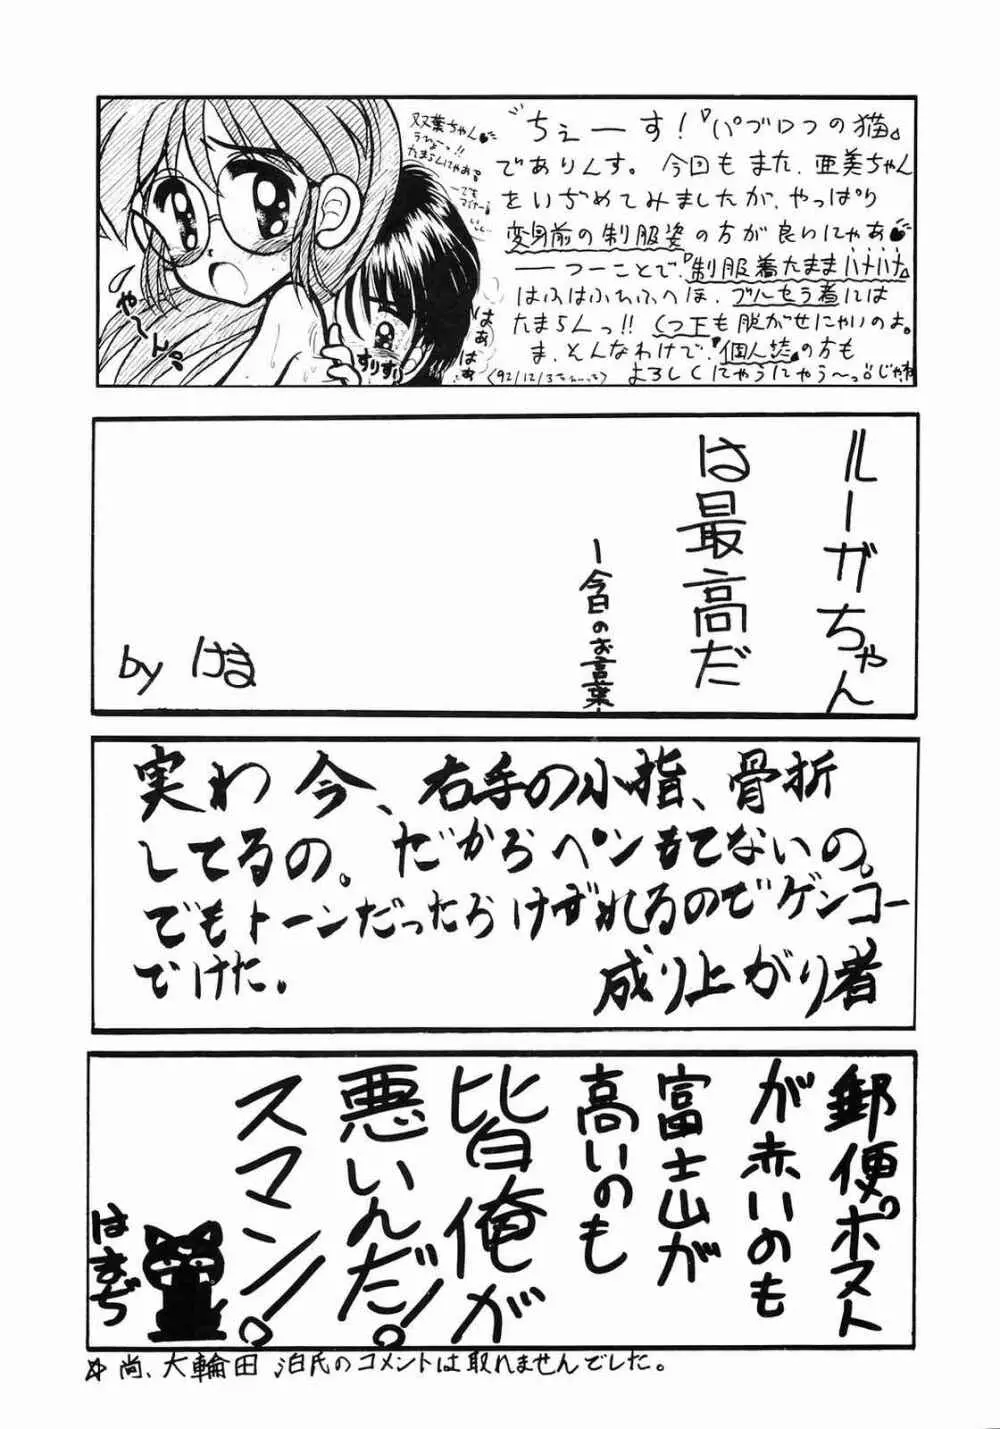 〝ちぇーす！『パブロフの猫』
でありんす。今回もまた、亜美ちゃん
をいぢめてみましたが、やっぱり
変身前の制服姿の方が良いにゃあ
――つーことで、『制服着たままハナハナ』
はふはふれふへほ、ブルセラ着には
たまらんっ!!くつ下も脱がせにゃいのよ。
ま、そんなわけで、『個人誌』の方も
よろしくにゃうにゃう〜っ。じゃね
〈92/12/3
双葉ちゃん
たまらんにゃあ
や〜ん。
すりすり
はあ はぁ
ルーガちゃん
は最高だ
ー今日のお言葉ー
by けま
実わ今、右手の小指、骨折
してるの。だからペンもてないの。
でもトーンだったらけずれるのでゲンコー
でけた。
成り上がり者
郵便ポスト
が赤いのも
富士山が
高いのも
皆俺が
悪いんだ！
スマン！。
はまぢ
☆尚、大輪田 泊氏のコメントは取れませんでした。